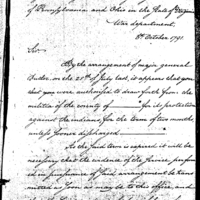 of Pennsylvania and Ohio in the State of Virginia
War department
8th October 1791
Sir
By the arrangement of major general
Butler on the 21st of July last, it appears that you
were authorized to draw forth from the
militia of the county of for its protection
against the indians, for the term of two months
unless sooner discharged
As the said term is expired it will be
necessary that the evidence of the service perform
ed in pursuance of said arrangement be trans
mitted as soon as may be to this office, and